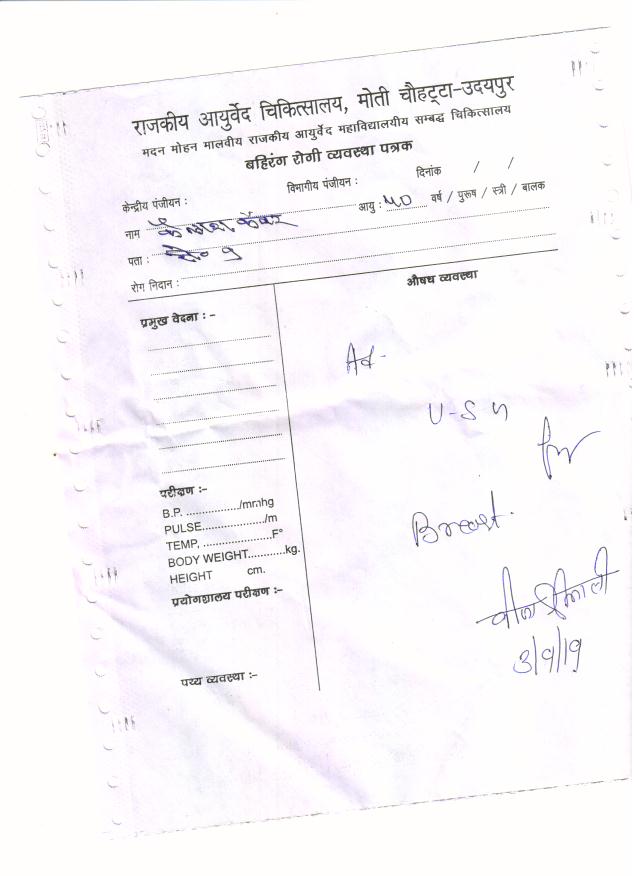 राजकीय आयुर्वेद चिकित्सालय, मोती चौहट्टा-उदयपुर
मदन मोहन मालवीय राजकीय आयुर्वेद महाविद्यालयीय सम्बद्ध चिकित्सालय
बहिरंग रोगी व्यवस्था पत्रक
केन्द्रीय पंजीयन : विभागीय पंजीयन : दिनांक / /
नाम कैलाश कँवर आयु : 40 वर्ष / पुरूष / स्त्री / बालक
पता :
रोग निदान :
प्रमुख वेदना :- औषध व्यवस्था
Ad-
U-S G
for
Breast.
परीक्षण :-
B.P. ............../mmhg
PULSE................/m
TEMP, ..................F°
BODY WEIGHT..........kg.
HEIGHT cm.
प्रयोगशालय परीक्षण :-
3/9/19
पथ्य व्यवस्था :-